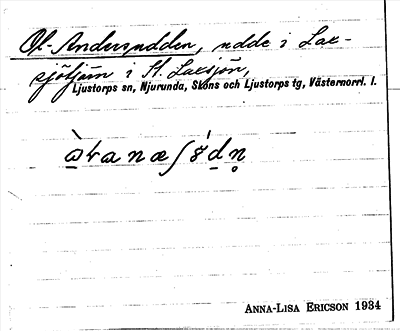 Ol-Andersudden, udde i Lax-
sjötjärn i St. Laxsjön,
Ljustorps sn, Njurunda, Sköns och Ljustorps tg, Västernorrl. l.
ANNA-LISA ERICSON 1934